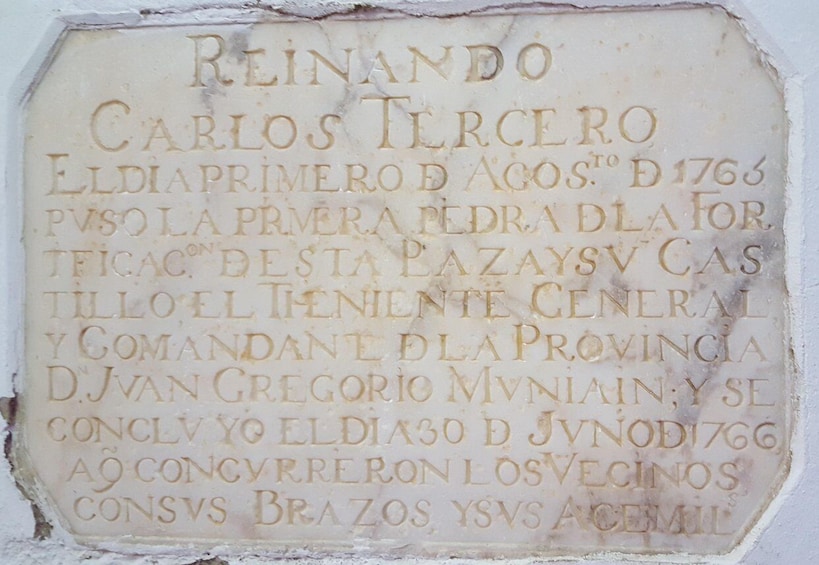 REINANDO
CARLOS TERCERO
EL DIA PRIMERO Đ AGOS.TO Đ 1766
PVSO LA PRMERA PEDRA D LA FOR
TFICAC.ON DESTA PLAZA Y SV CAS
TILLO EL THENIENTE GENERAL
Y COMANDANTE Đ LA PROVINCIA
D.N JVAN GREGORIO MVNIAIN; Y SE
CONCLVYO EL DIA 30 Đ JVNO Đ 1766
A Q̃ CONCVRRERON LOS VECINOS
CON SVS BRAZOS, Y SVS ACEMIL.S